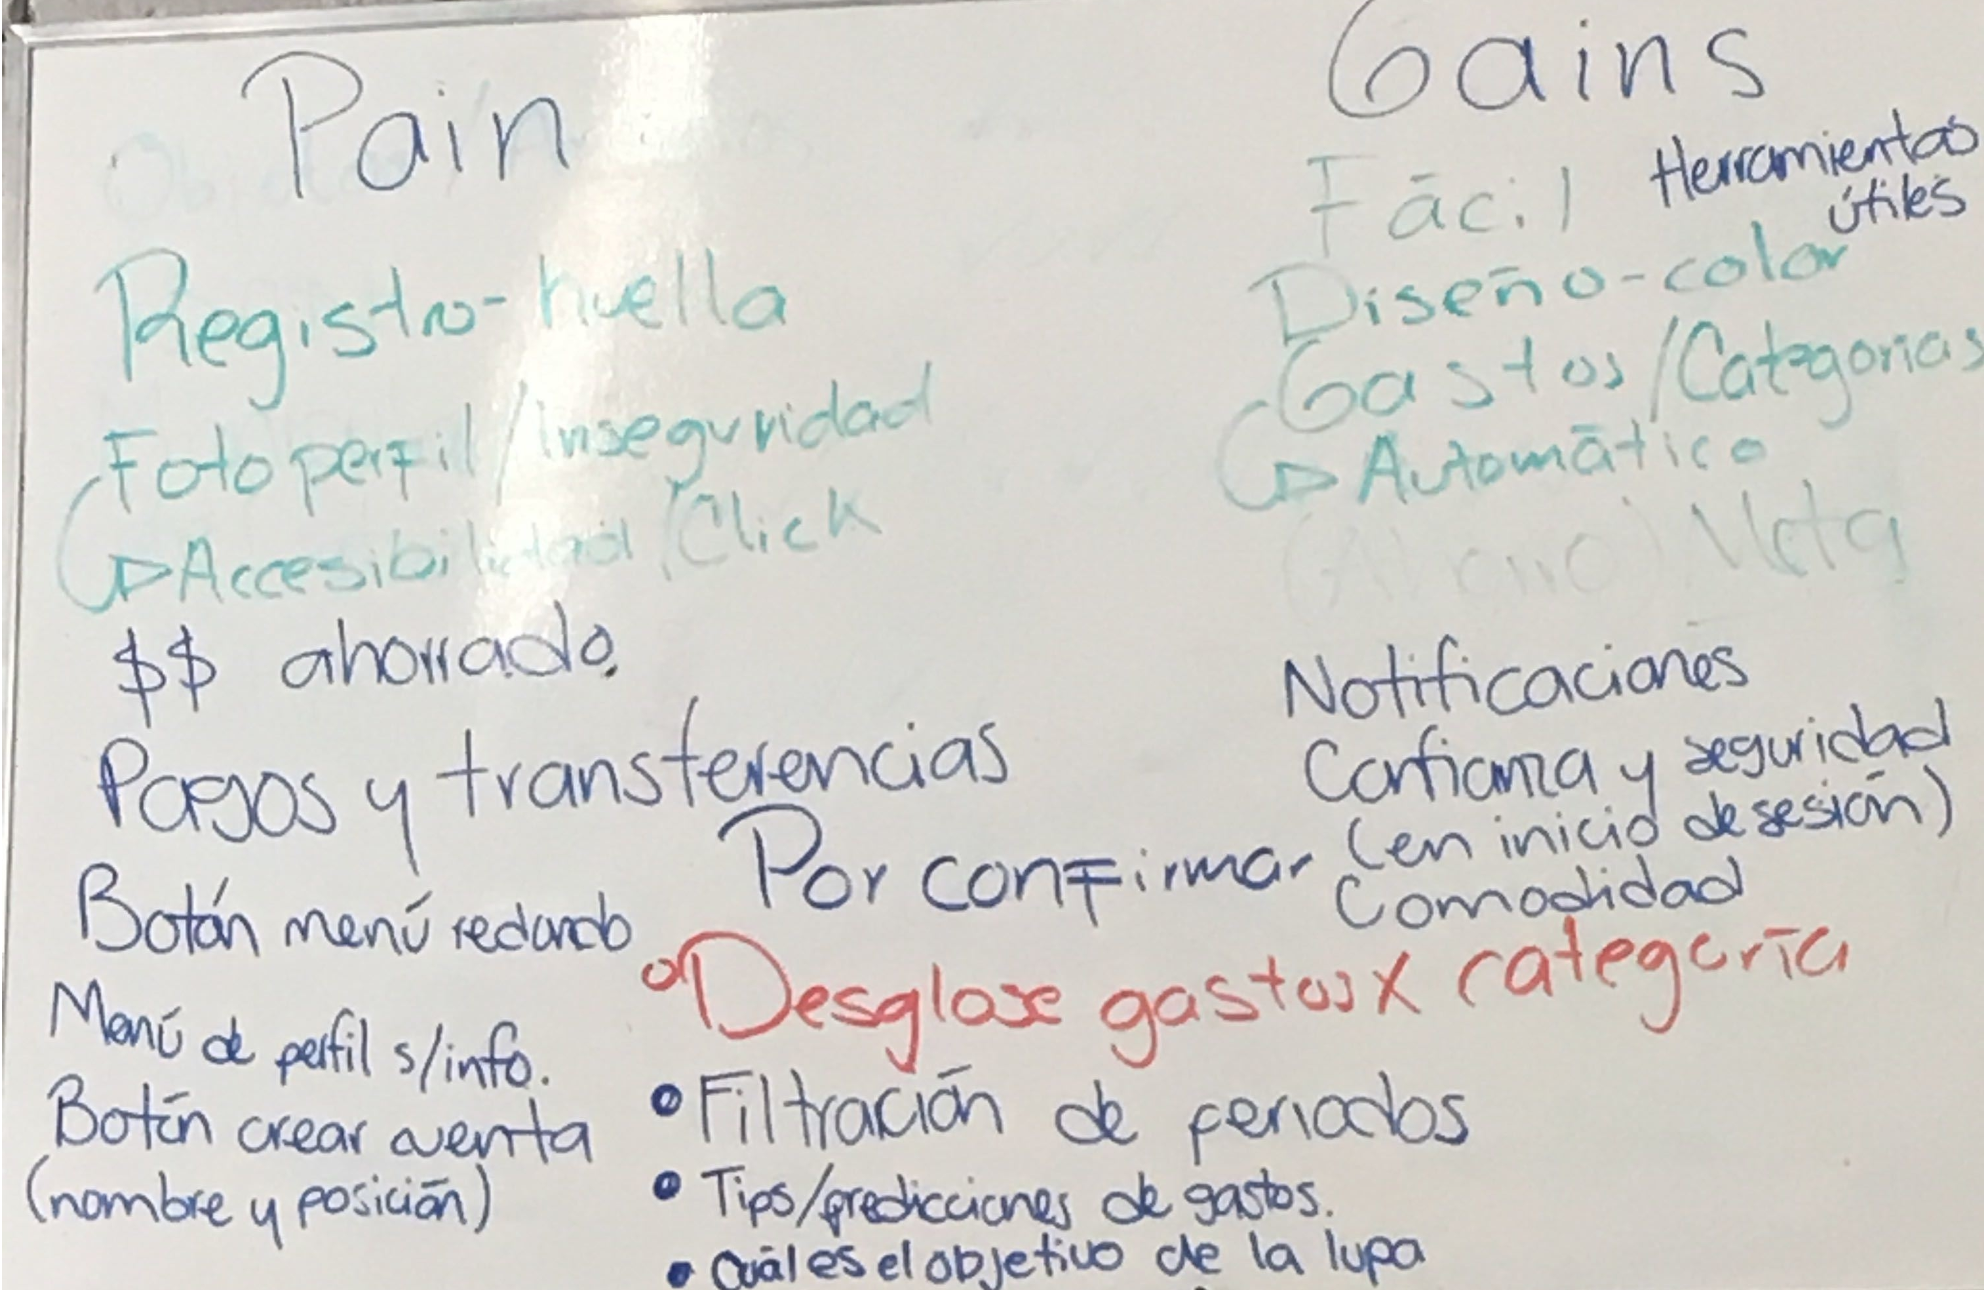 Pain
Registro-huella
Foto perfil/Inseguridad
Accesibilidad/Click
$$ ahorrado.
Pagos y transferencias
Botón menú redondo
Menú de perfil s/info.
Botón crear cuenta
(nombre y posición)
Gains
Fácil
Herramientas
útiles
Diseño-color
Gastos/Categorias
Automático
(Ahorro) Meta
Notificaciones
Confianza y seguridad
(en inicio de sesión)
Comodidad
Por confirmar
Desglose gastos x categoría
Filtración de periodos
Tips/predicciones de gastos.
Cuál es el objetivo de la lupa